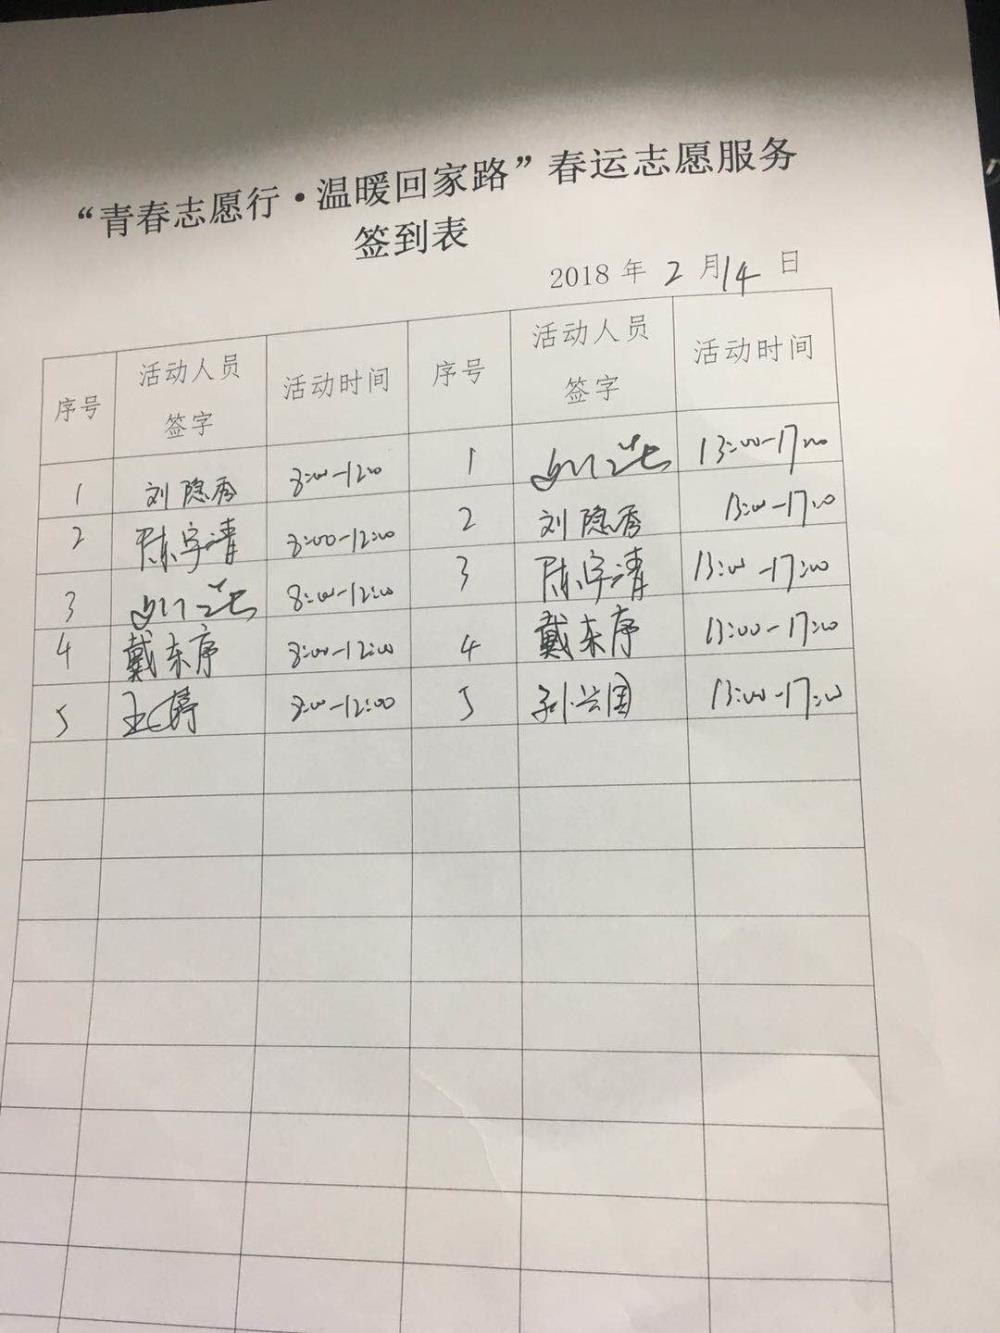 “青春志愿行·温暖回家路”春运志愿服务
签到表
2018 年 2 月 14 日
序号 活动人员签字 活动时间 序号 活动人员签字 活动时间
1 刘隐秀 8:00-12:00 1 13:00-17:00
2 陈宇清 8:00-12:00 2 刘隐秀 13:00-17:00
3 8:00-12:00 3 陈宇清 13:00-17:00
4 戴东序 8:00-12:00 4 戴东序 13:00-17:00
5 王婷 8:00-12:00 5 兴国 13:00-17:00